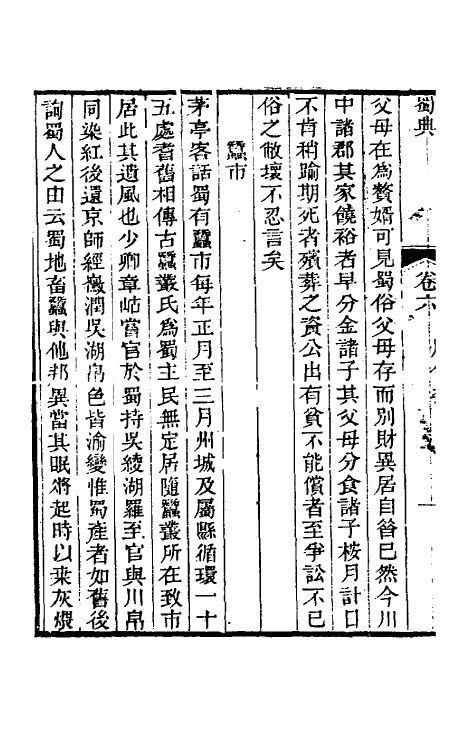 蜀典
卷六
父母在為贅婿可見蜀俗父母存而別財異居自昔已然今川
中諸郡其家饒裕者早分金諸子其父母分食諸子桉月計日
不肯稍踰期死者殯葬之資公出有貧不能償者至爭訟不已
俗之敝壞不忍言矣
蠶市
茅亭客話蜀有蠶市每年正月至三月州城及屬縣循環一十
五處耆舊相傳古蠶叢氏為蜀主民無定居隨蠶叢所在致市
居此其遺風也少卿章岵嘗官於蜀持吳綾湖羅至官與川帛
同染紅後還京師經黴潤吳湖帛色皆渝變惟蜀產者如舊後
詢蜀人之由云蜀地畜蠶與他邦異當其眠將起時以桒灰煨